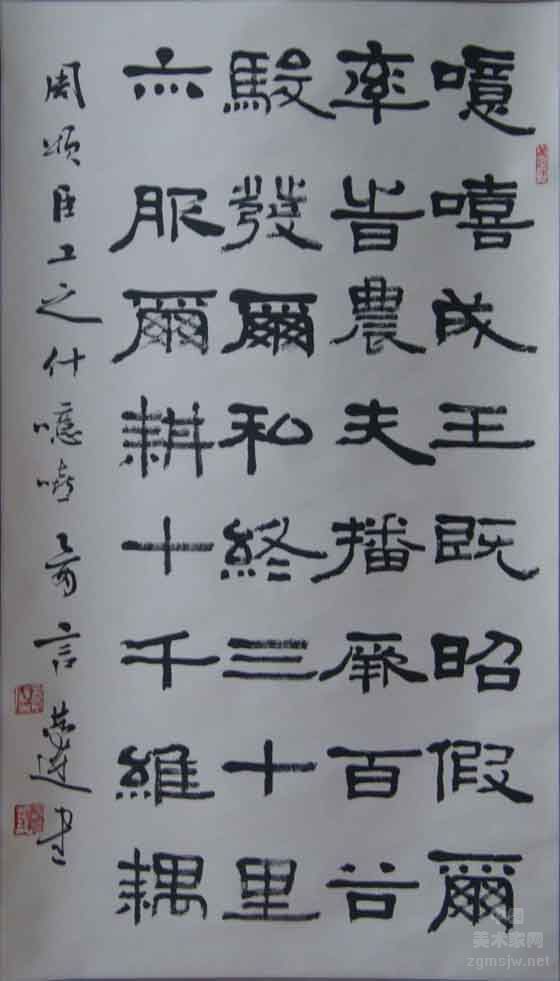 噫嘻成王既昭假爾
率旹農夫播厥百谷
駿發爾私終三十里
亦服爾耕十千維耦
周頌臣工之什噫嘻言書
美术家网
zgmsjw.net